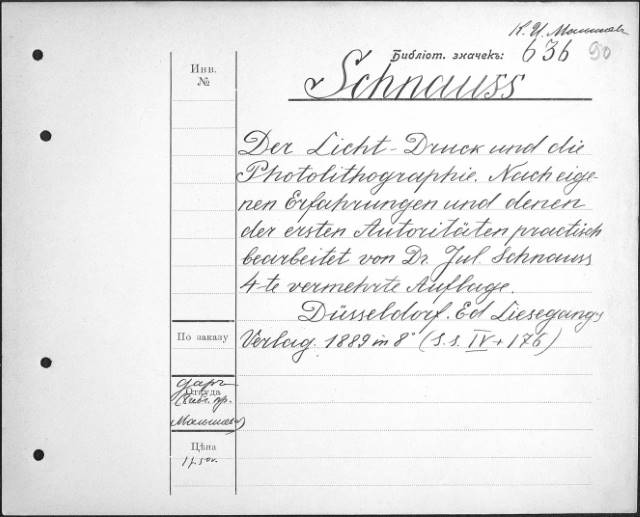 К. И. Малышев
Библіот. значекъ: 636 90
Schnauss
Инв.
№
Der Licht-Druck und die
Photolithographie. Nach eige
nen Erfahrungen und denen
der ersten Autoritäten practisch
bearbeitet von Dr. Jul. Schnauss
4-te vermehrte Auflage.
Düsseldorf. Ed Liesegangs
Verlag. 1889 in 8° (S.S. IV + 176)
По заказу
даръ
Откуда
Цѣна